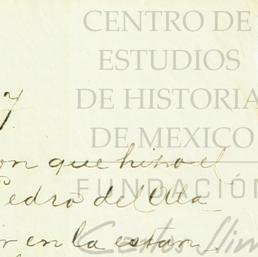 CENTRO DE
ESTUDIOS
DE HISTORIA
DE MEXICO
y
on que hizo el
FUNDACIÓN
Pedro del
Carlos Slim
en la estan